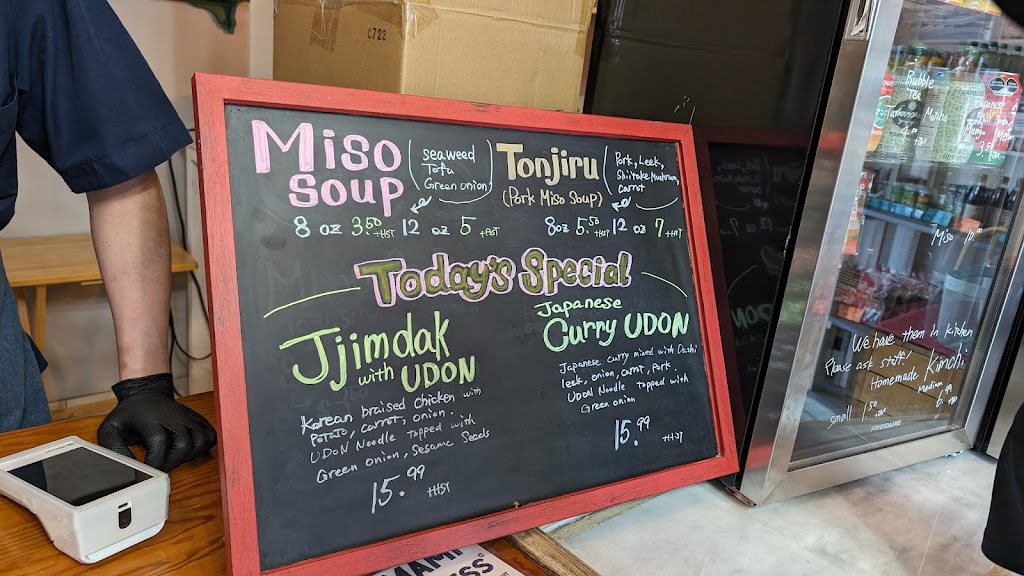 C722
Miso
Soup
Seaweed
Tofu
Green onion
8 oz 3.50 +HST 12 oz 5 +HST
Tonjiru
(Pork Miso Soup)
Pork, Leek,
Shiitake Mushroom,
Carrot
8oz 5.50 +HST 12 oz 7 +HST
Today's Special
Jjimdak
with UDON
Korean braised chicken with
Potato, carrot, onion.
UDON Noodle Topped with
Green onion, Sesame Seeds
15.99 +HST
Japanese
Curry UDON
Japanese curry mixed with Dashi
leek, onion, carrot, Pork.
Udon Noodle Topped with
Green onion
15.99 +HST
Bubble
Japanese
Miso
We have them in kitchen
Please ask staff!
Homemade Kimchi
small
medium
FRIGIDAIRE